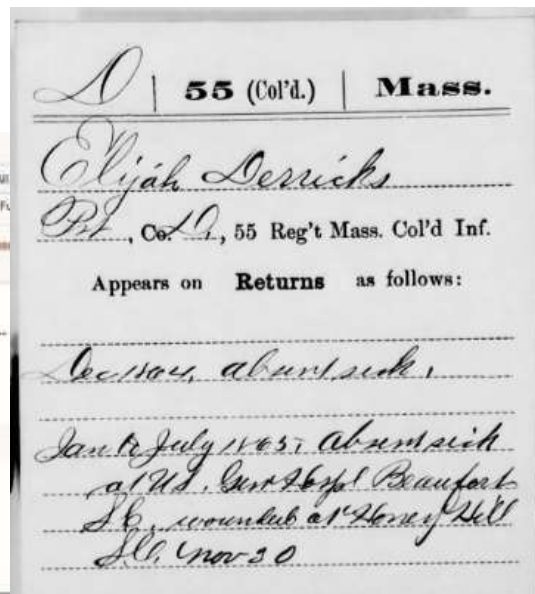 D | 55 (Col'd.) | Mass.
Elijah Derricks
Pvt, Co. D, 55 Reg't Mass. Col'd Inf.
Appears on Returns as follows:
Dec 1864, absent sick.
Jan to July 1865, absent sick
at US. Gen Hospl Beaufort
S.C. wounded at Honey Hill
S.C. Nov 30